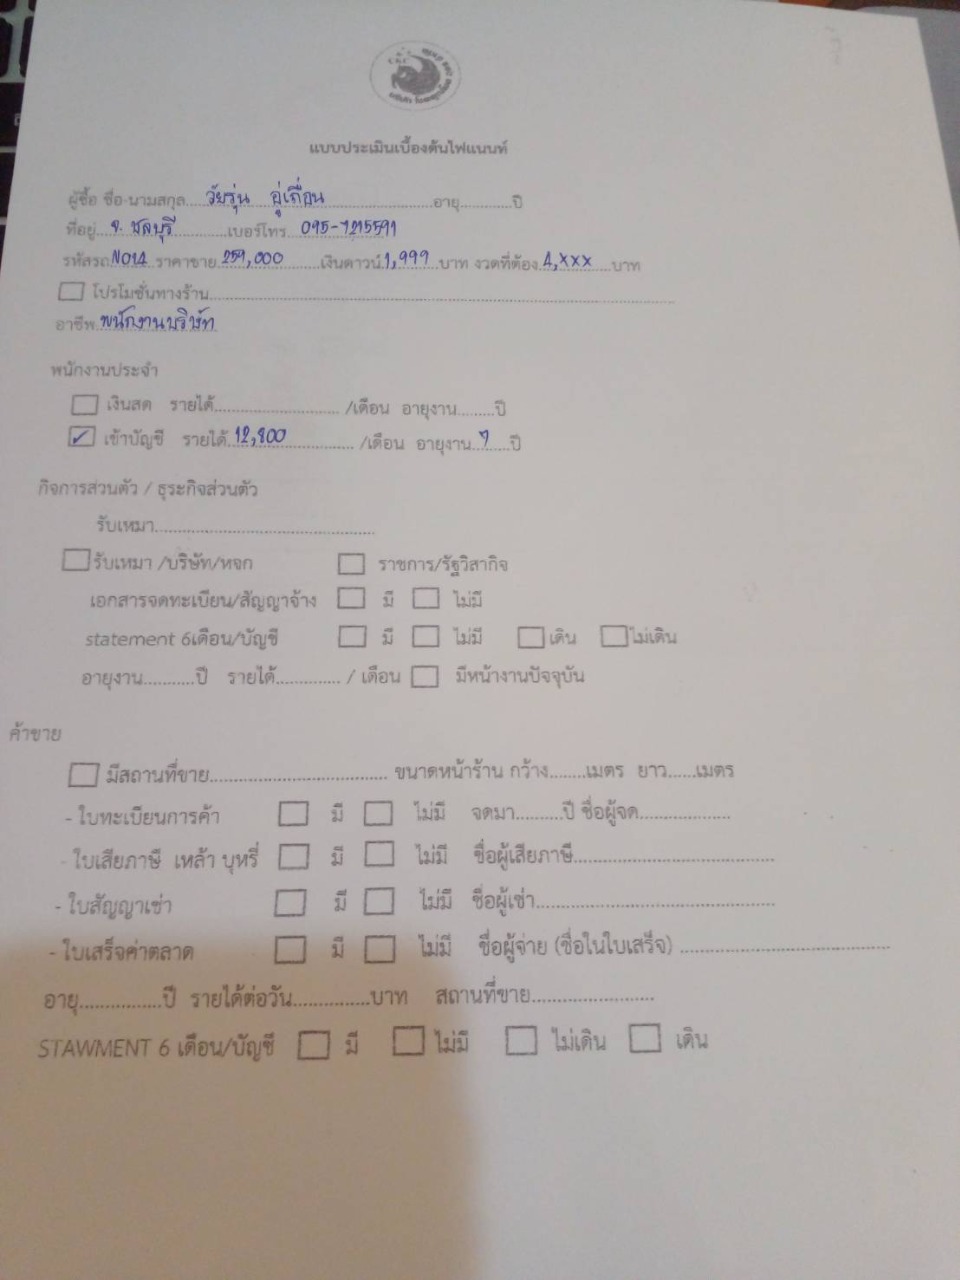 แบบประเมินเบื้องต้นไฟแนนท์
ผู้ซื้อ ชื่อ-นามสกุล....วัยรุ่น อู่เถื่อน....อายุ............ปี
ที่อยู่...จ. ชลบุรี...เบอร์โทร...095-7215591
รหัสรถ N014 ราคาขาย 259,000 เงินดาวน์ 1,999 บาท งวดที่ต้อง 4,xxx บาท
โปรโมชั่นทางร้าน
อาชีพ พนักงานบริษัท
พนักงานประจำ
เงินสด รายได้............................ /เดือน อายุงาน........ปี
✓ เข้าบัญชี รายได้ 12,800 /เดือน อายุงาน 7 ปี
กิจการส่วนตัว / ธุระกิจส่วนตัว
รับเหมา
รับเหมา /บริษัท/หจก ราชการ/รัฐวิสากิจ
เอกสารจดทะเบียน/สัญญาจ้าง มี ไม่มี
statement 6เดือน/บัญชี มี ไม่มี เดิน ไม่เดิน
อายุงาน...........ปี รายได้.............. / เดือน มีหน้างานปัจจุบัน
ค้าขาย
มีสถานที่ขาย.................................... ขนาดหน้าร้าน กว้าง........เมตร ยาว......เมตร
- ใบทะเบียนการค้า มี ไม่มี จดมา..........ปี ชื่อผู้จด....................
- ใบเสียภาษี เหล้า บุหรี่ มี ไม่มี ชื่อผู้เสียภาษี............................................
- ใบสัญญาเช่า มี ไม่มี ชื่อผู้เช่า....................................................
- ใบเสร็จค่าตลาด มี ไม่มี ชื่อผู้จ่าย (ชื่อในใบเสร็จ) ............................................
อายุ................ปี รายได้ต่อวัน..............บาท สถานที่ขาย........................
STAWMENT 6 เดือน/บัญชี มี ไม่มี ไม่เดิน เดิน